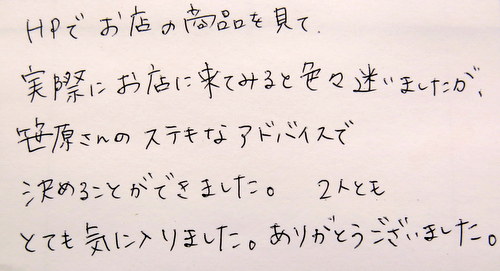 HPでお店の商品を見て、
実際にお店に来てみると色々迷いましたが、
笹原さんのステキなアドバイスで
決めることができました。 2人とも
とても気に入りました。ありがとうございました。